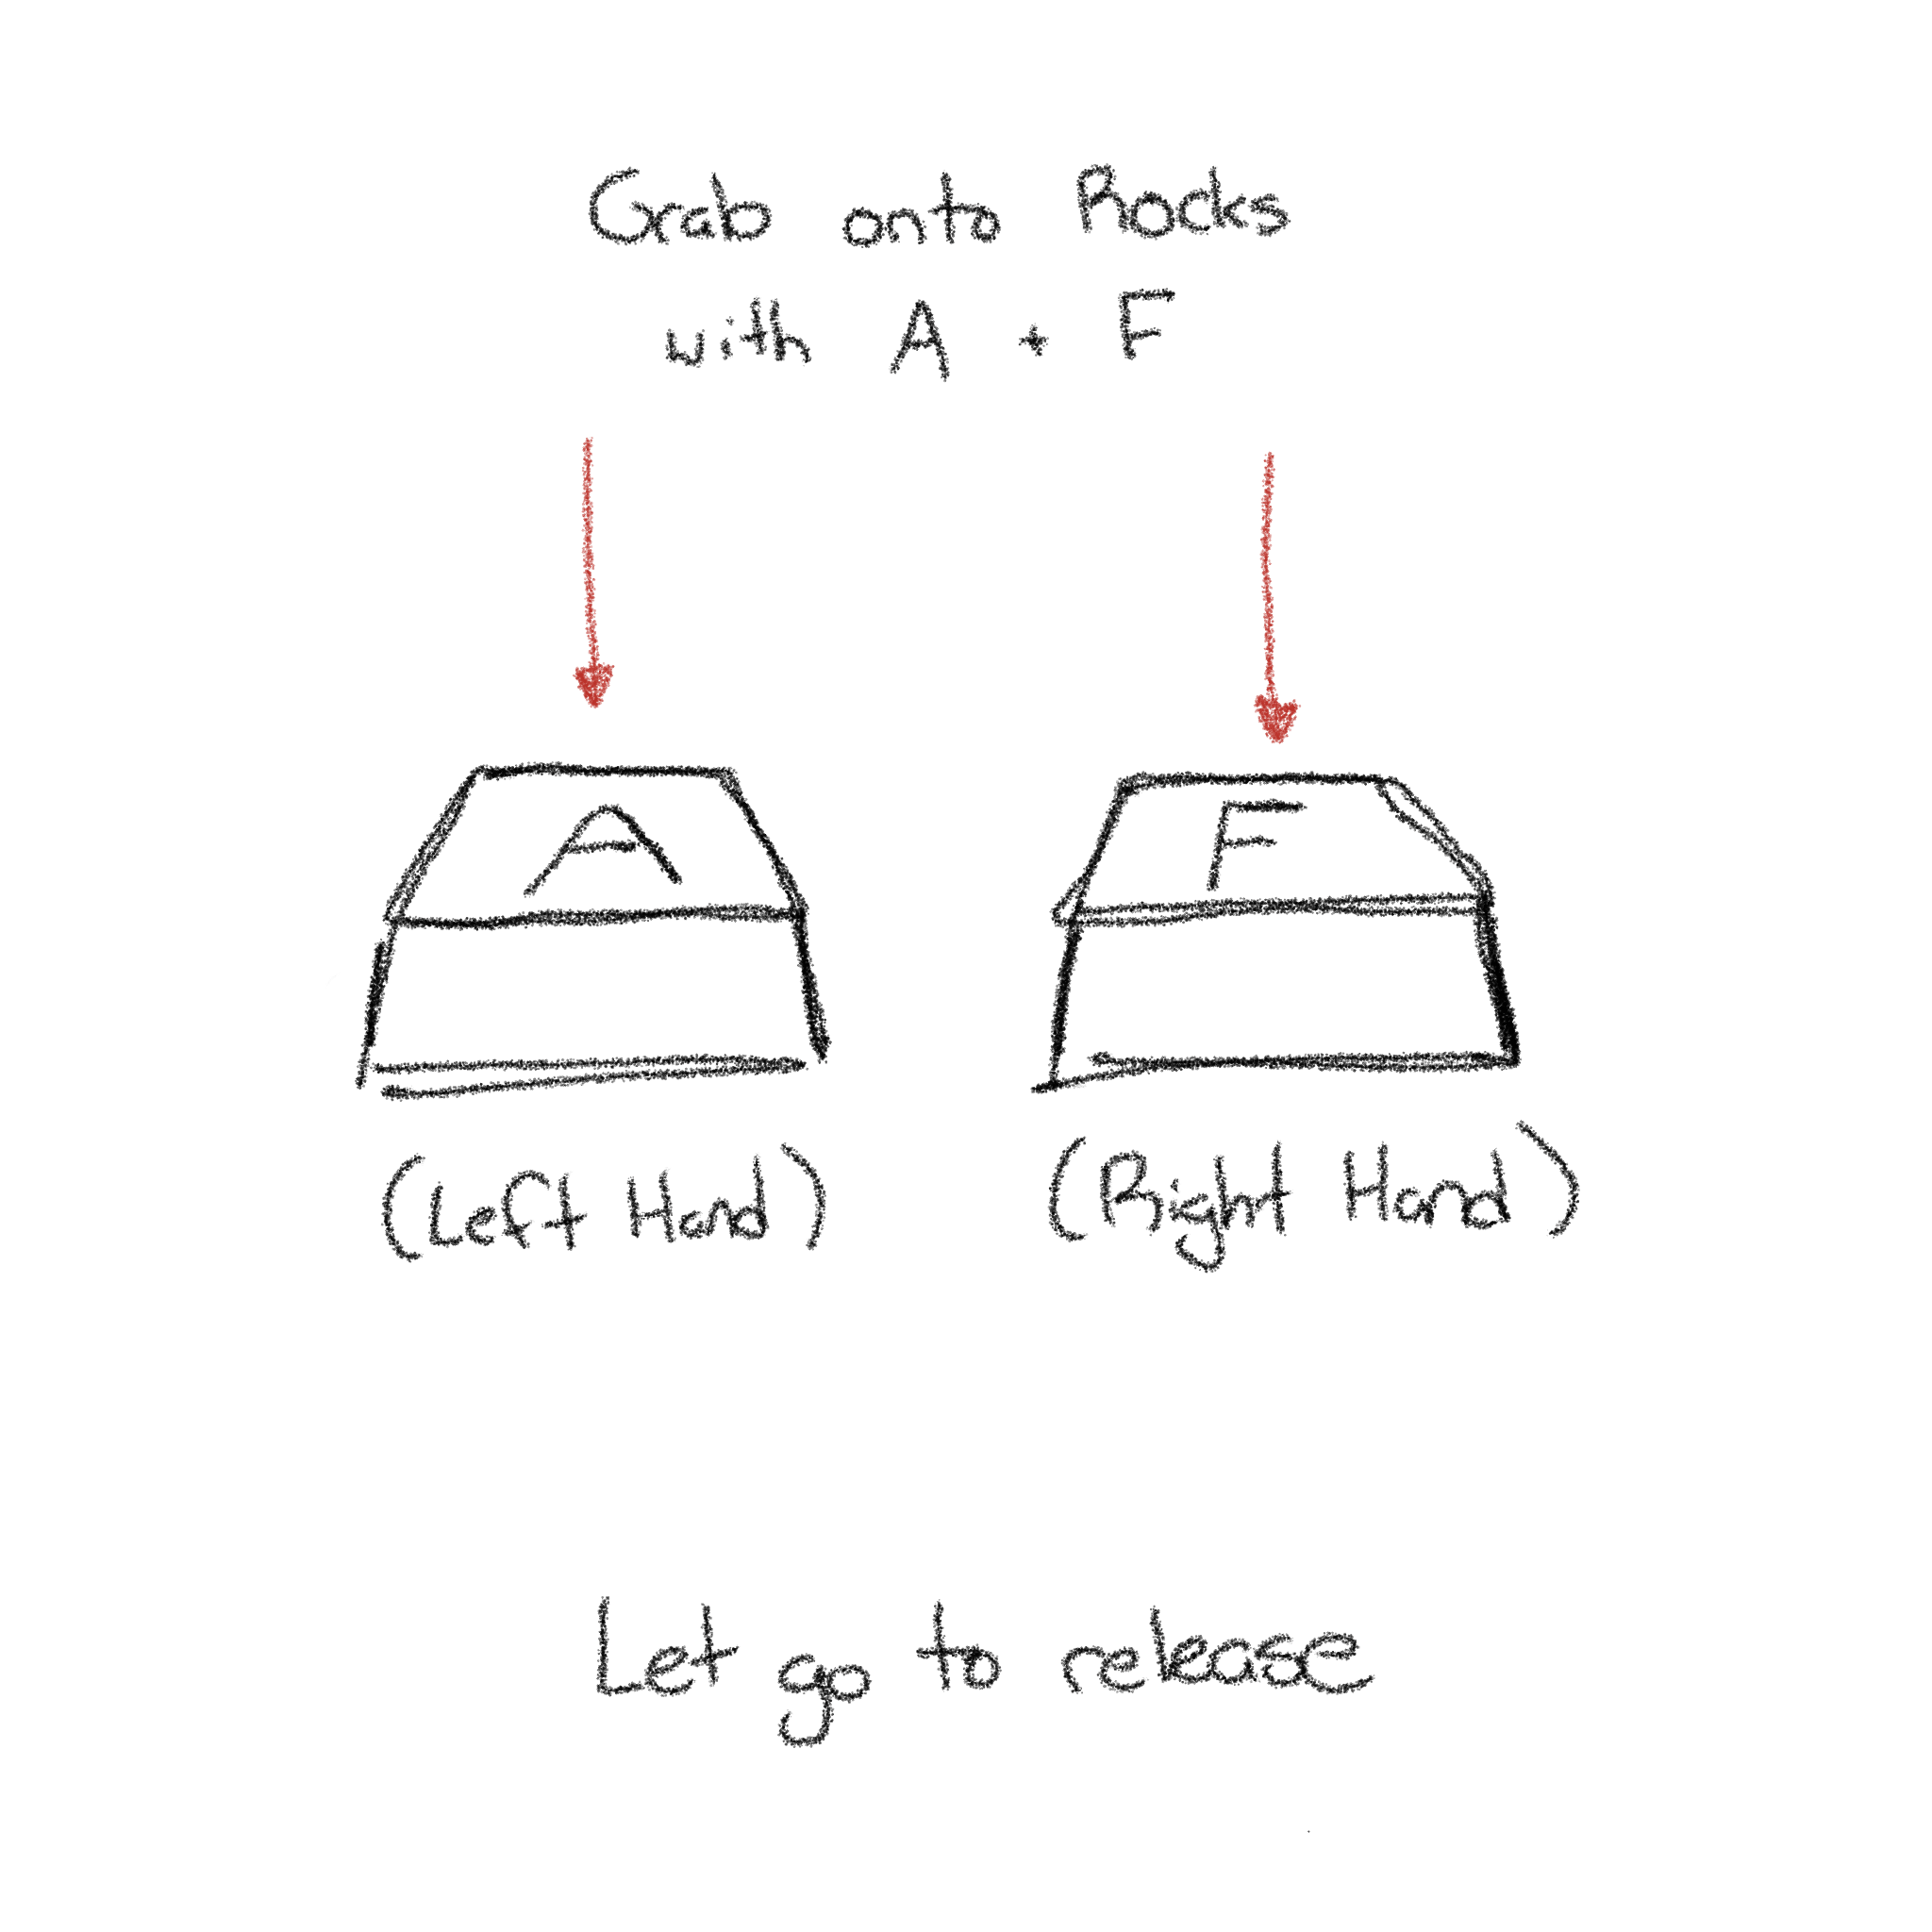 Grab onto Rocks
with A + F
A
F
(Left Hand)
(Right Hand)
Let go to release